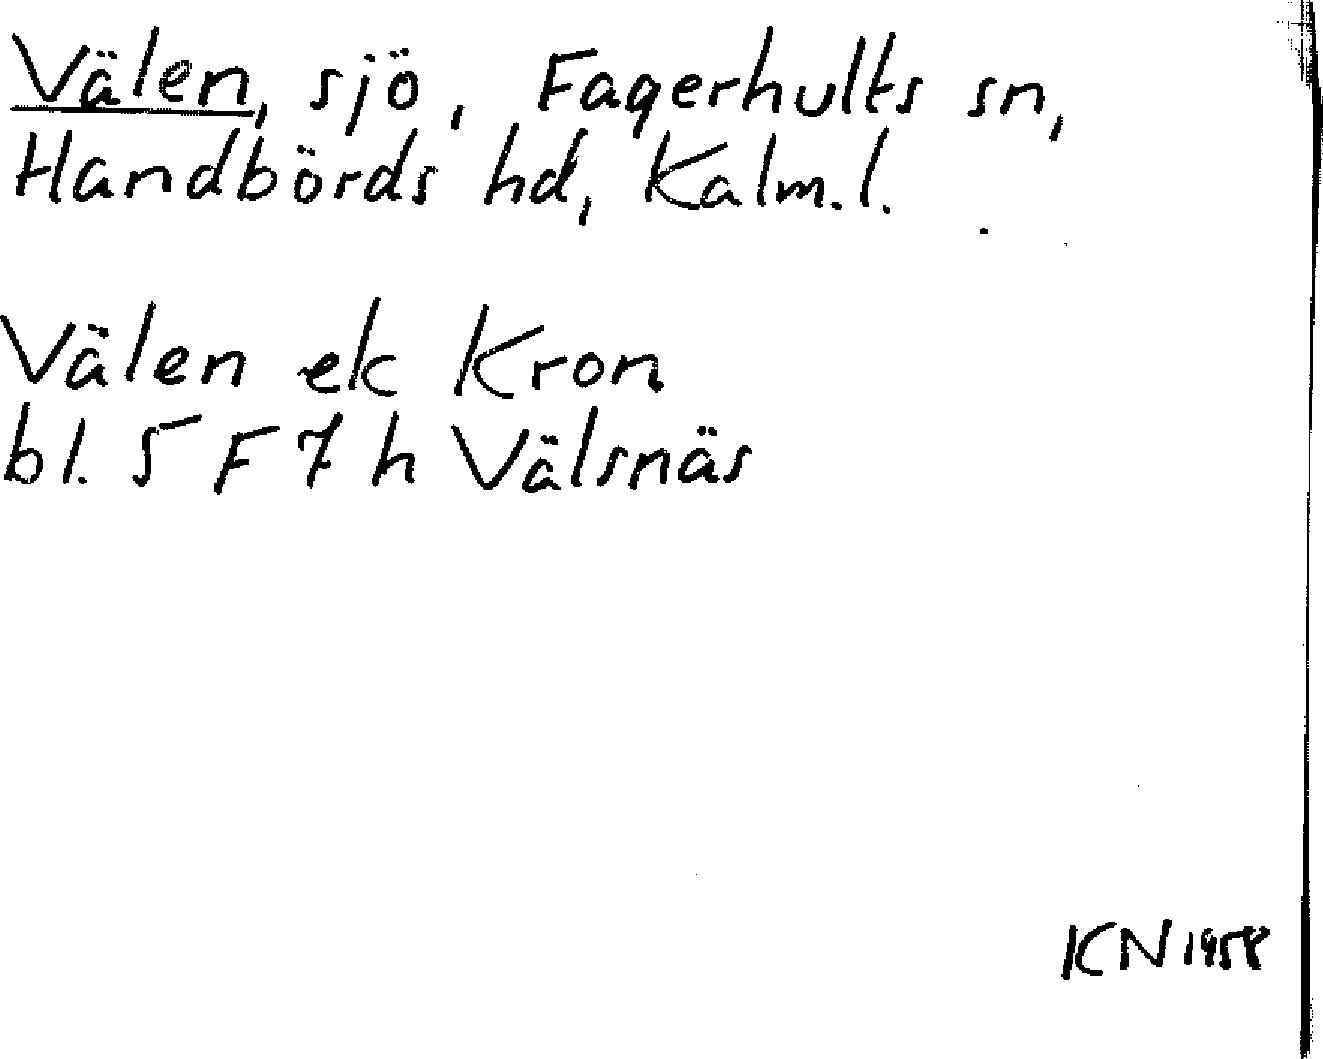 Välen, sjö, Fagerhults sn,
Handbörds hd, Kalm.l.
Välen ek Kron
bl. 5 F 7 h Välsnäs
KN 1958